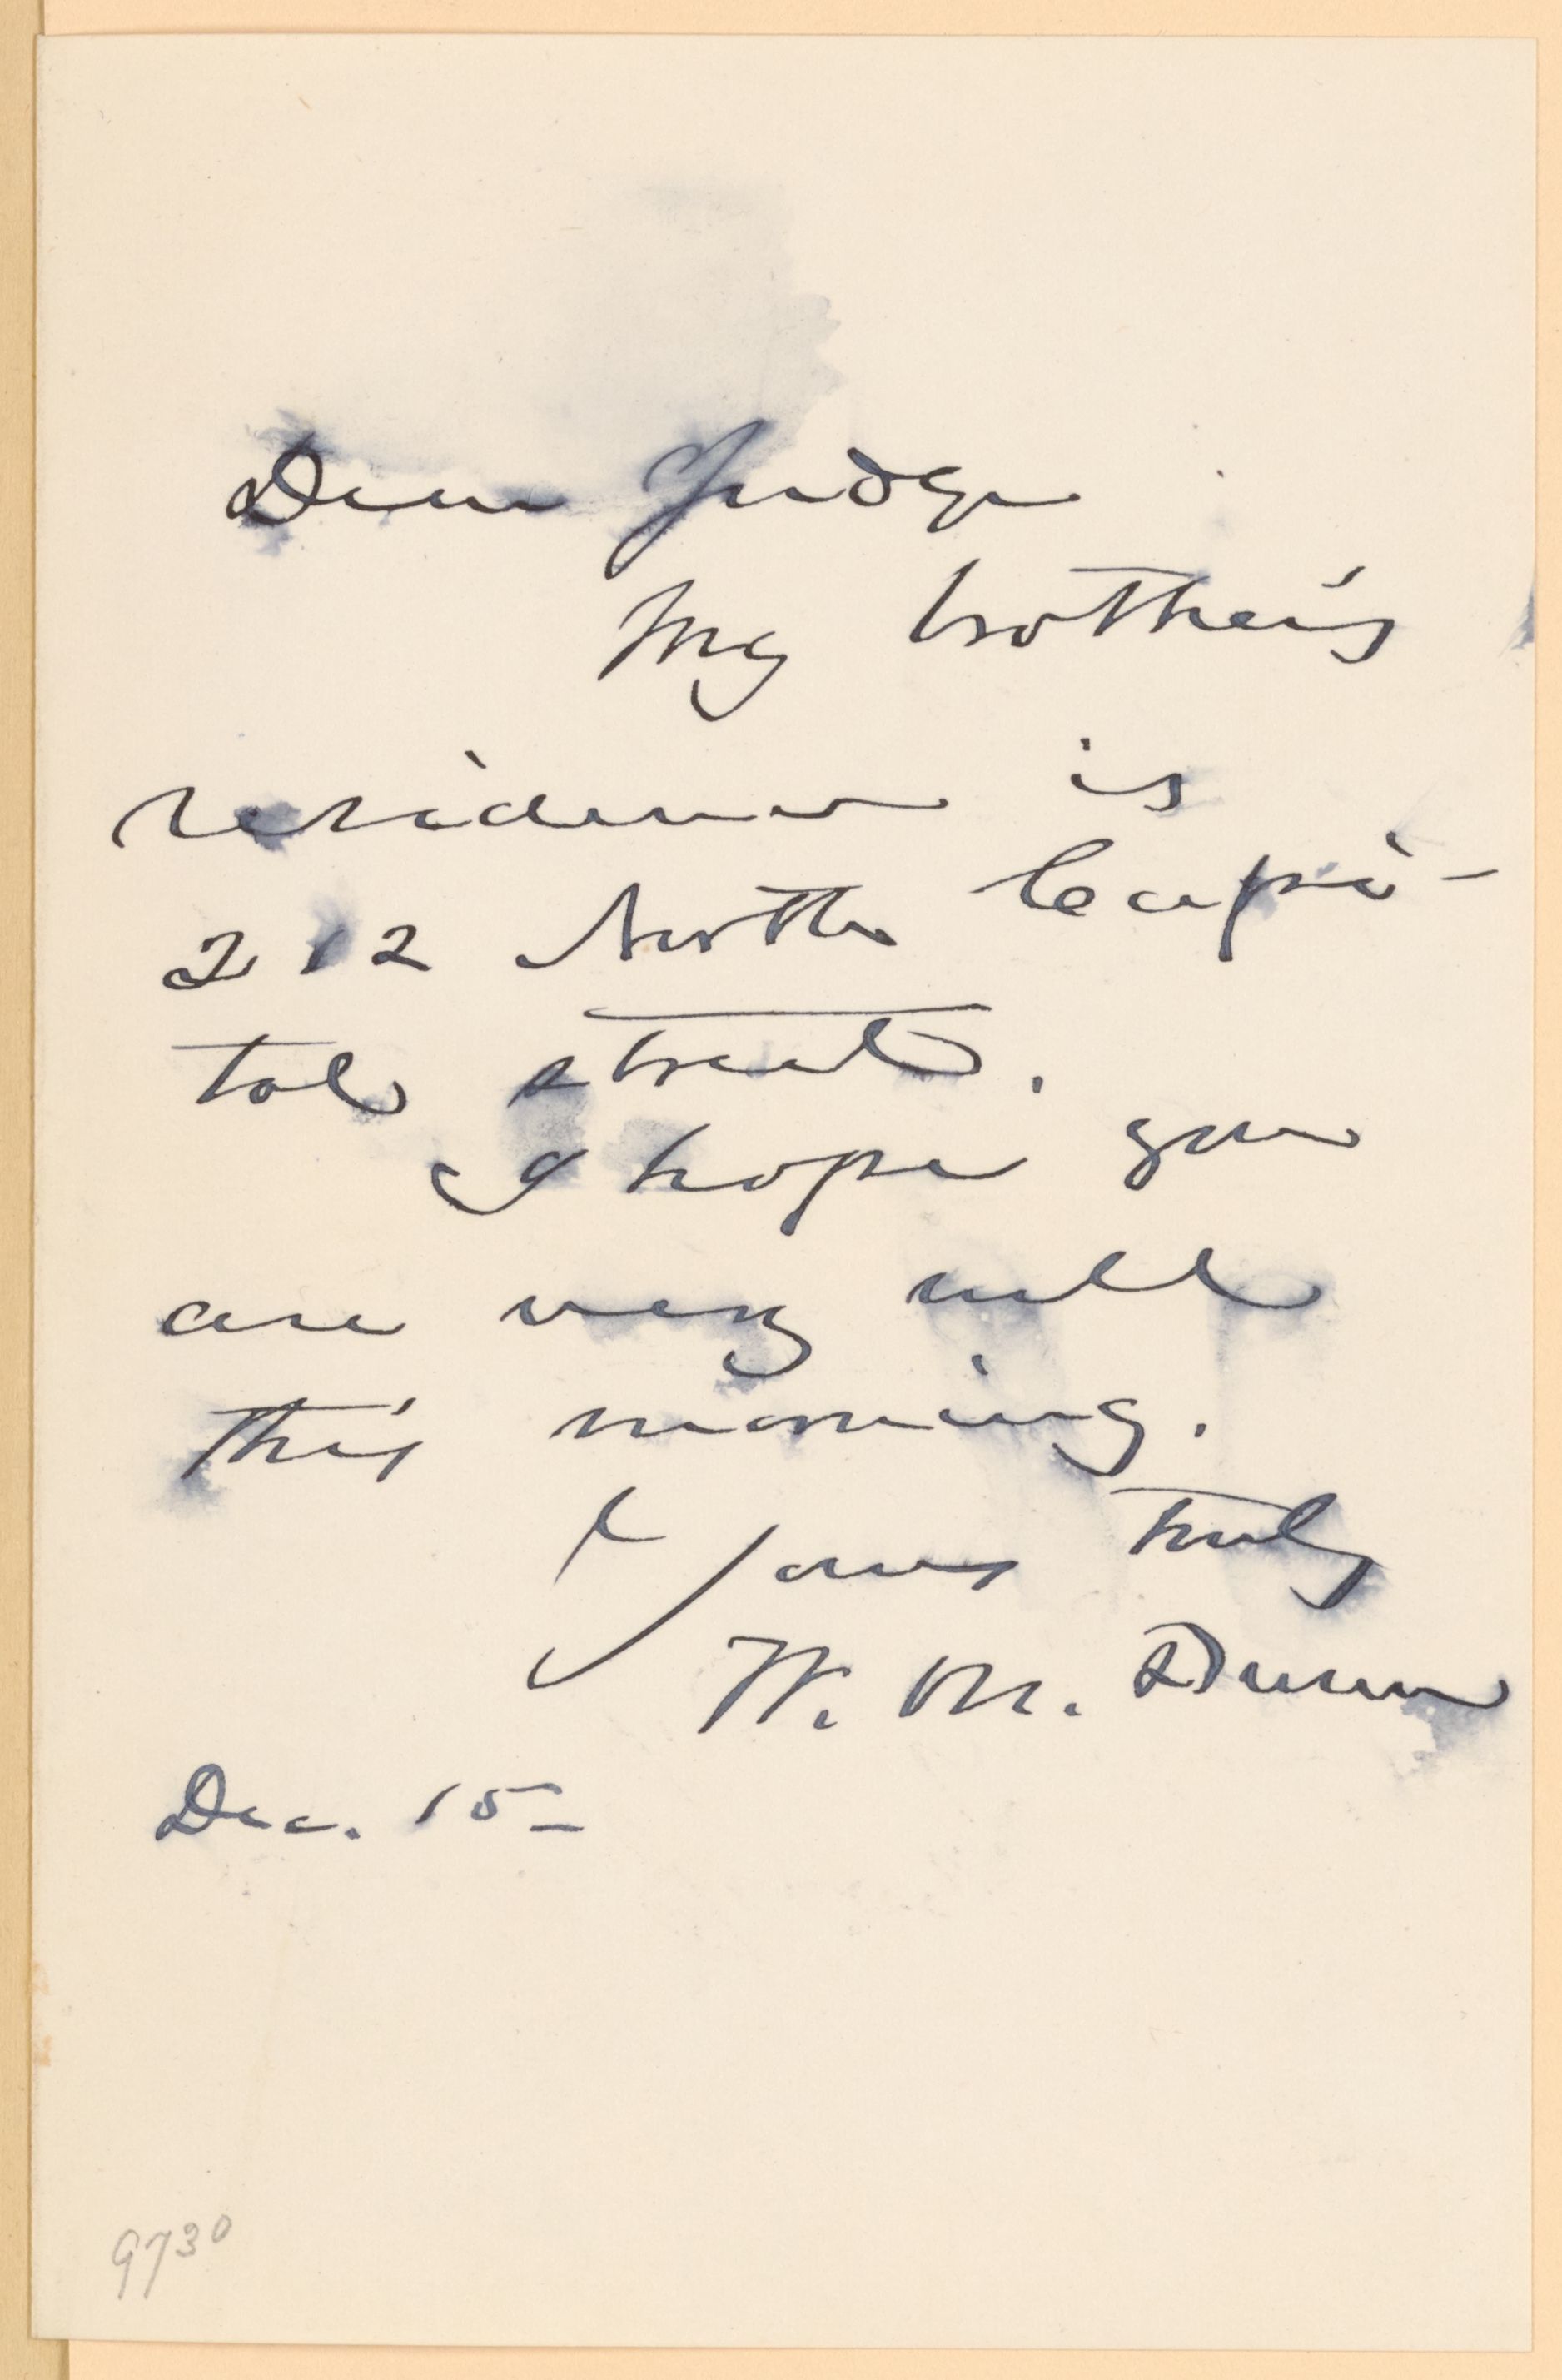 Dear Judge
My brother's
residence is
212 North Capi-
tol street.
I hope you
are very well
this morning.
Yours truly
W. M. Dunn
Dec. 15
9730